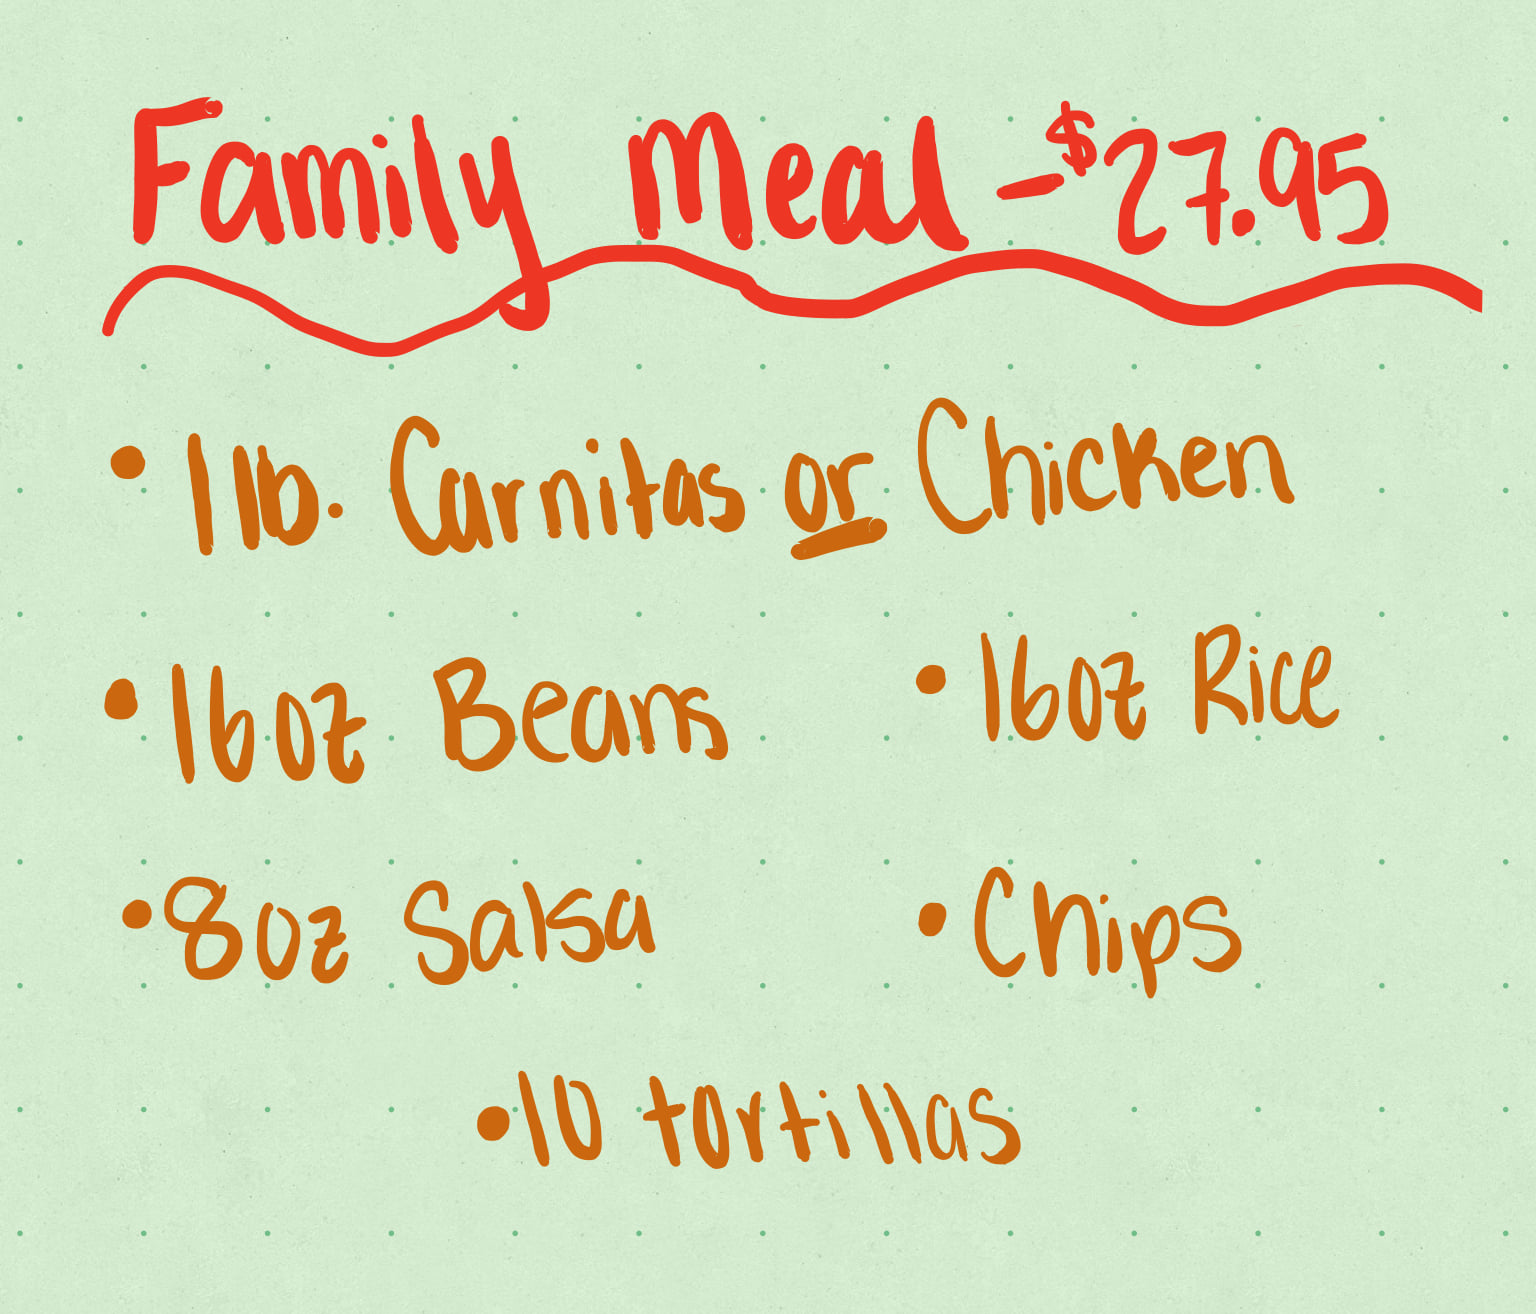 Family Meal - $27.95
• 1 lb. Carnitas or Chicken
• 16oz Beans
• 16oz Rice
• 8oz Salsa
• Chips
• 10 tortillas